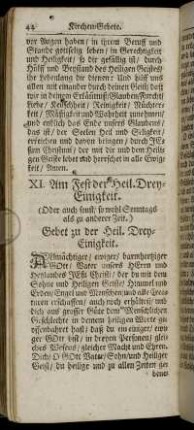 44 Kirchen-Gebete.
vor Augen haben/ in ihrem Beruff und
Stande gottselig leben/ in Gerechtigkeit
und Heiligkeit/ so dir gefällig ist/ durch
Hülff und Beystand des Heiligen Geistes/
ihr Lebenlang dir dienen/ Und hilff uns
allen mit einander durch deinen Geist/ daß
wir in deinem Erkäntnuß/ Glauben/ Furcht/
Liebe/ Keuschheit/ Reinigkeit/ Nüchter-
keit/ Mässigkeit und Wahrheit zunehmen/
und endlich das Ende unsers Glaubens/
das ist/ der Seelen Heil und Seligkeit/
erreichen und davon bringen/ durch JEs-
sum Christum/ der mit dir und dem Heili-
gen Geiste lebet und herrschet in alle Ewig-
keit/ Amen.
XI. Am Fest der Heil. Drey-
Einigkeit.
(Oder auch sonst/ so wohl Sonntags
als zu anderer Zeit.)
Gebet zu der Heil. Drey-
Einigkeit.
Allmächtiger/ ewiger/ barmhertziger
GOtt/ Vater unsers HErrn und
Heylandes JEsu Christi/ der du mit dem
Sohne und Heiligen Geiste/ Himmel und
Erden/ Engel und Menschen/ und alle Crea-
turen erschaffen/ auch noch erhältst/ und
dich aus grosser Güte dem Menschlichen
Geschlechte in deinem heiligen Worte zu
offenbahret hast/ daß du ein einiger/ ewi-
ger GOtt bist/ in dreyen Personen/ glei-
ches Wesens/ gleicher Macht und Ehren.
Dich/ O GOtt Vater/ Sohn/ und Heiliger
Geist/ du heilige und zu allen Zeiten ge-
bene